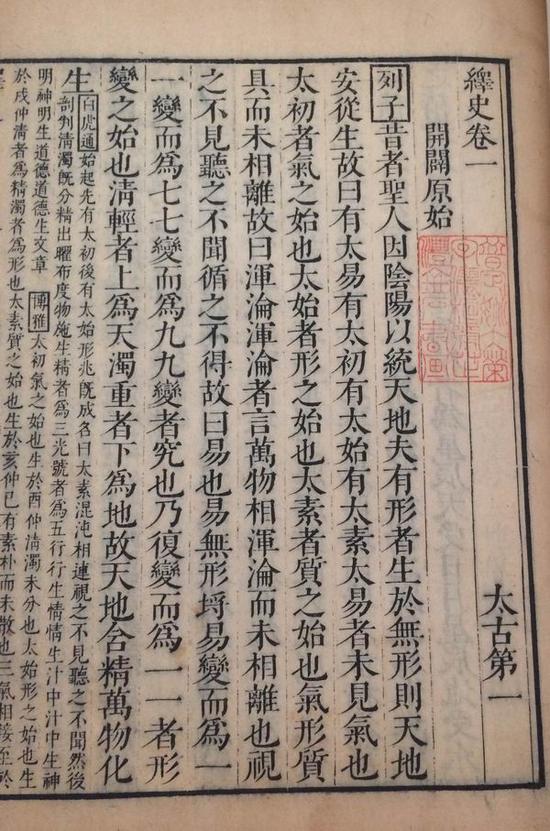 繹史卷一
太古第一
開闢原始
列子昔者聖人因陰陽以統天地夫有形者生於無形則天地
安從生故曰有太易有太初有太始有太素太易者未見氣也
太初者氣之始也太始者形之始也太素者質之始也氣形質
具而未相離故曰渾淪渾淪者言萬物相渾淪而未相離也視
之不見聽之不聞循之不得故曰易也易無形埒易變而爲一
一變而爲七七變而爲九九變者究也乃復變而爲一一者形
變之始也清輕者上爲天濁重者下爲地故天地含精萬物化
生
白虎通始起先有太初後有太始形兆既成名曰太素混沌相連視之不見聽之不聞然後
剖判清濁既分精出曜布度物施生精者爲三光號者爲五行行生情情生汁中汁中生神
明神明生道德道德生文章 博雅太初氣之始也生於酉仲清濁未分也太始形之始也生
於戌仲清者爲精濁者爲形也太素質之始也生於亥仲已有素朴而未散也三氣相接至於